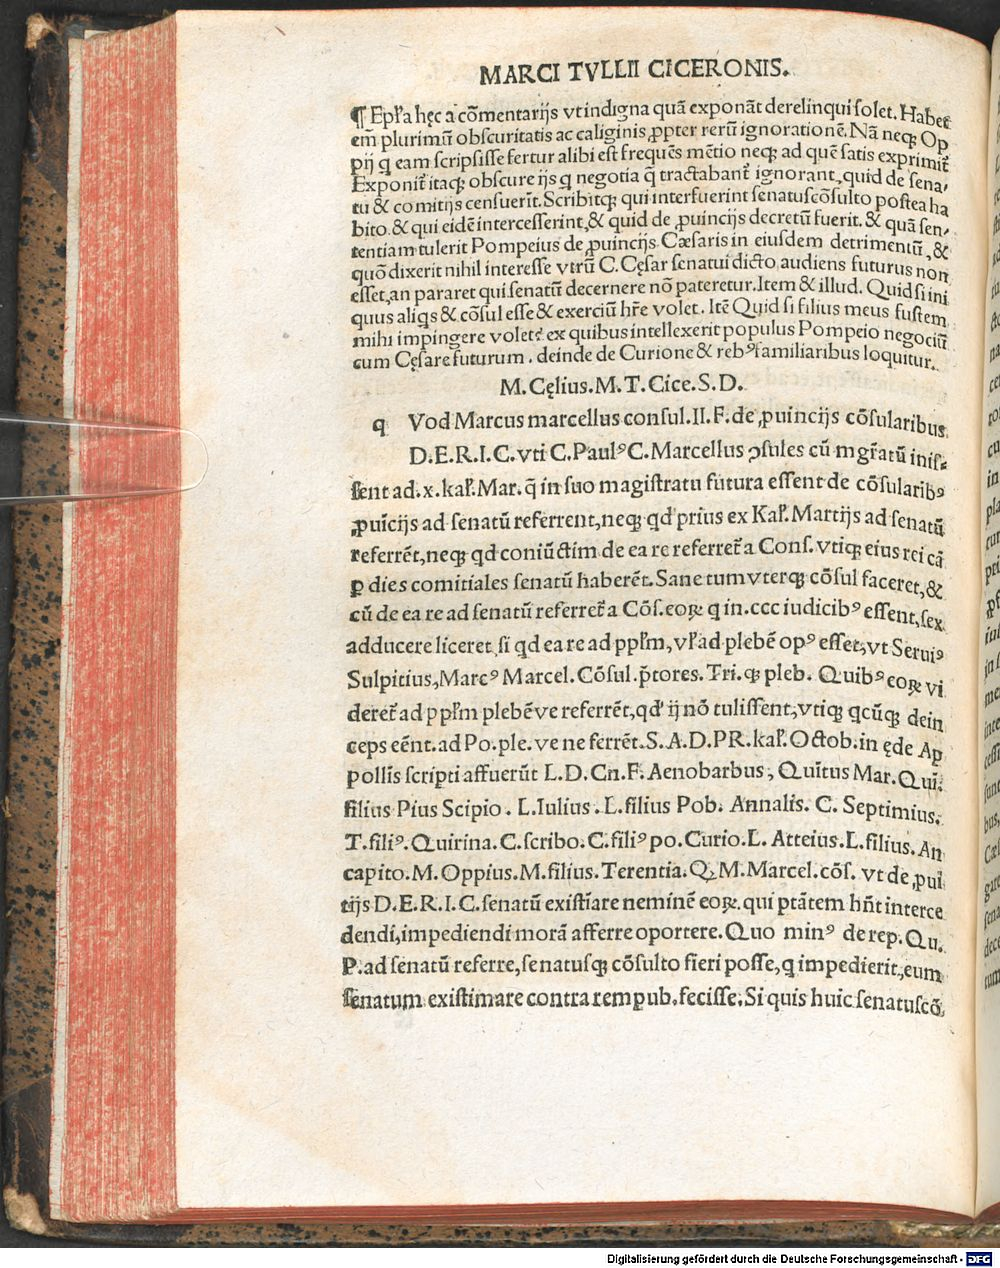 MARCI TVLLII CICERONIS.
¶ Epła hęc a cōmentarijs vt indigna quā exponāt derelinqui solet. Habet
em̄ plurimū obscuritatis ac caliginis ꝓpter rerū ignorationē. Nā neqꝫ Op
pij q eam scripsisse fertur alibi est frequēs mētio neqꝫ ad quē satis exprimit̄
Exponit̄ itaqꝫ obscure ijs q negotia q̄ tractabant̄ ignorant, quid de sena,
tu & comitijs censuerit. Scribitqꝫ qui interfuerint senatuscōsulto postea ha
bito & qui eidē intercesserint, & quid de ꝓuincijs decretū fuerit. & quā sen,
tentiam tulerit Pompeius de ꝓuincijs Cæsaris in eiusdem detrimentū, &
quō dixerit nihil interesse vtrū C. Cęsar senatui dicto audiens futurus non
esset, an pararet qui senatū decernere nō pateretur. Item & illud. Quid si ini
quus aliqs & cōsul esse & exerciū hr̄e volet. Itē Quid si filius meus fustem
mihi impingere volet? ex quibus intellexerit populus Pompeio negociū
cum Cęsare futurum. deinde de Curione & rebꝰ familiaribus loquitur.
M. Cęlius. M. T. Cice. S. D.
q Vod Marcus marcellus consul. II. F. de ꝓuincijs cōsularibus
D. E. R. I. C. vti C. Paulꝰ C. Marcellus ꝯsules cū mgr̄atū inis,
sent ad. x. kal'. Mar. q̄ in suo magistratu futura essent de cōsularibꝰ
ꝓuīcijs ad senatū referrent, neqꝫ qd prius ex Kal'. Martijs ad senatū
referrēt, neqꝫ qd coniūctim de ea re referret̄ a Cons. vtiqꝫ eius rei cā
ꝑ dies comitiales senatū haberēt. Sane tum vterqꝫ cōsul faceret, &
cū de ea re ad senatū referret̄ a Cōs. eoꝝ q in. ccc iudicibꝰ essent, sex
adducere liceret si qd ea re ad ppl'm, vl' ad plebē opꝰ esset, vt Seruiꝰ
Sulpitius, Marcꝰ Marcel. Cōsul. p̄tores. Tri. qꝫ pleb. Quibꝰ eoꝝ vi
deret̄ ad ppl'm plebēve referrēt, qd' ij nō tulissent, vtiqꝫ qcūqꝫ dein
ceps eēnt. ad Po. ple. ve ne ferrēt. S. A. D. PR. kal'. Octob. in ęde Ap
pollīs scripti affuerūt L. D. Cn. F. Aenobarbus, Quītus Mar. Quī.
filius Pius Scipio. L. Iulius. L. filius Pob. Annalis. C. Septimius.
T. filiꝰ. Quirina. C. scribo. C. filiꝰ po. Curio. L. Atteius. L. filius. An
capito. M. Oppius. M. filius. Terentia. Q; M. Marcel. cōs. vt de ꝓuī
tijs D. E. R. I. C. senatū existīare neminē eoꝝ. qui ptātem hn̄t interce
dendi, impediendi morā afferre oportere. Quo minꝰ de rep. Qu.
P. ad senatū referre, senatusqꝫ cōsulto fieri posse, q impedierit, eum
senatum existimare contra rempub. fecisse. Si quis huic senatuscō
Digitalisierung gefördert durch die Deutsche Forschungsgemeinschaft - DFG